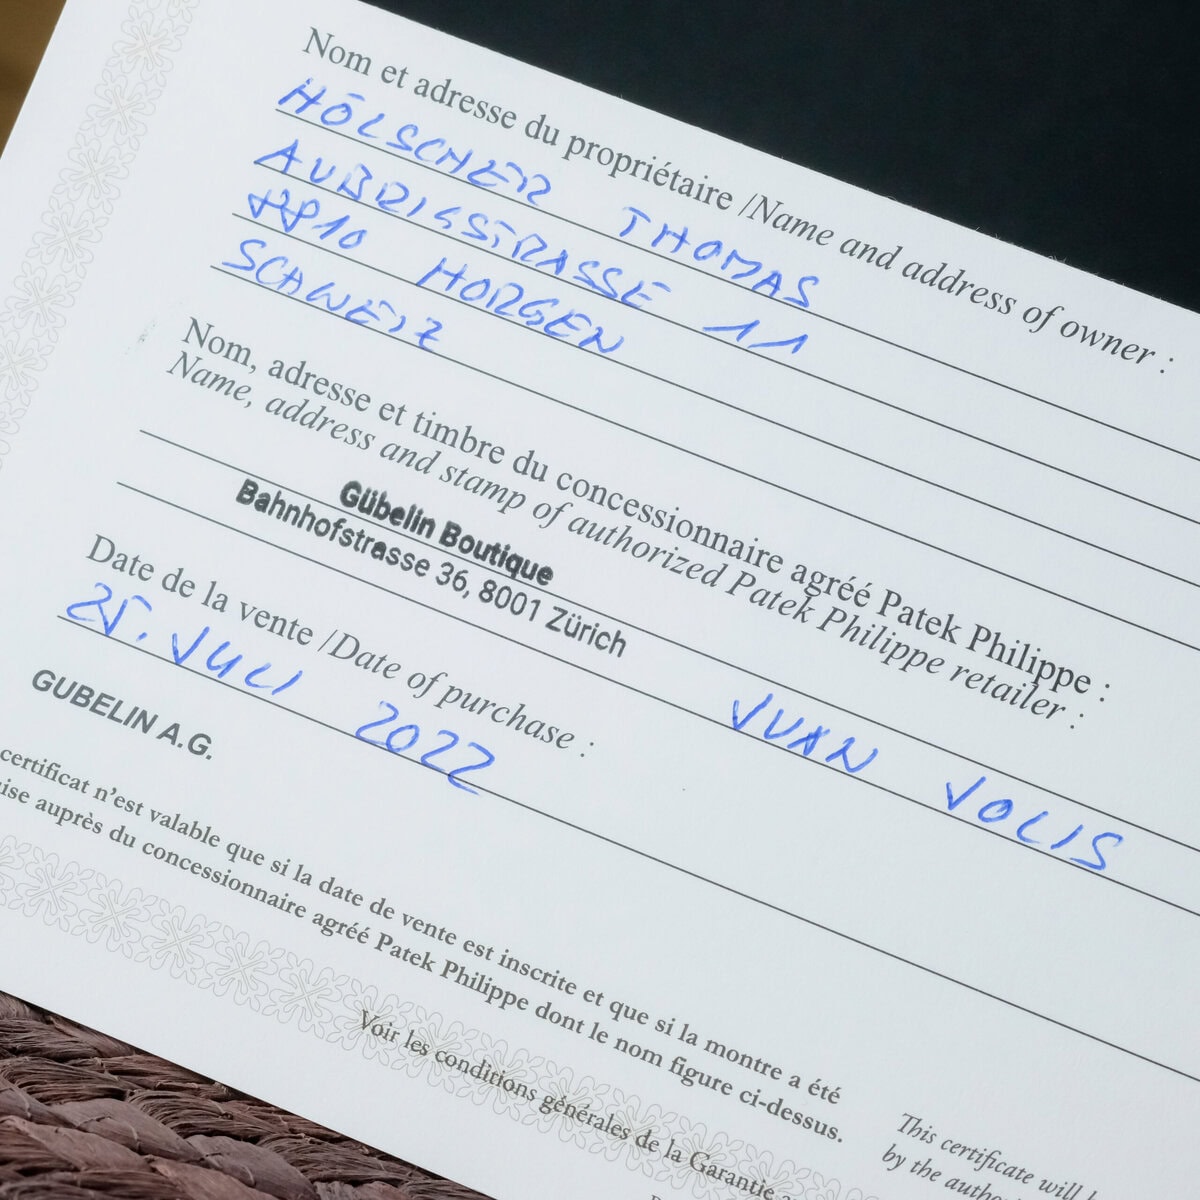 Nom et adresse du propriétaire /Name and address of owner :
HÖLSCHER THOMAS
AUBRIGSTRASSE 11
8810 HORGEN
SCHWEIZ
Nom, adresse et timbre du concessionnaire agréé Patek Philippe :
Name, address and stamp of authorized Patek Philippe retailer :
Gübelin Boutique
Bahnhofstrasse 36, 8001 Zürich
JUAN JOLIS
Date de la vente /Date of purchase :
25. JULI 2022
GUBELIN A.G.
certificat n'est valable que si la date de vente est inscrite et que si la montre a été
auprès du concessionnaire agréé Patek Philippe dont le nom figure ci-dessus.
Voir les conditions générales de la Garantie
This certificate will
by the